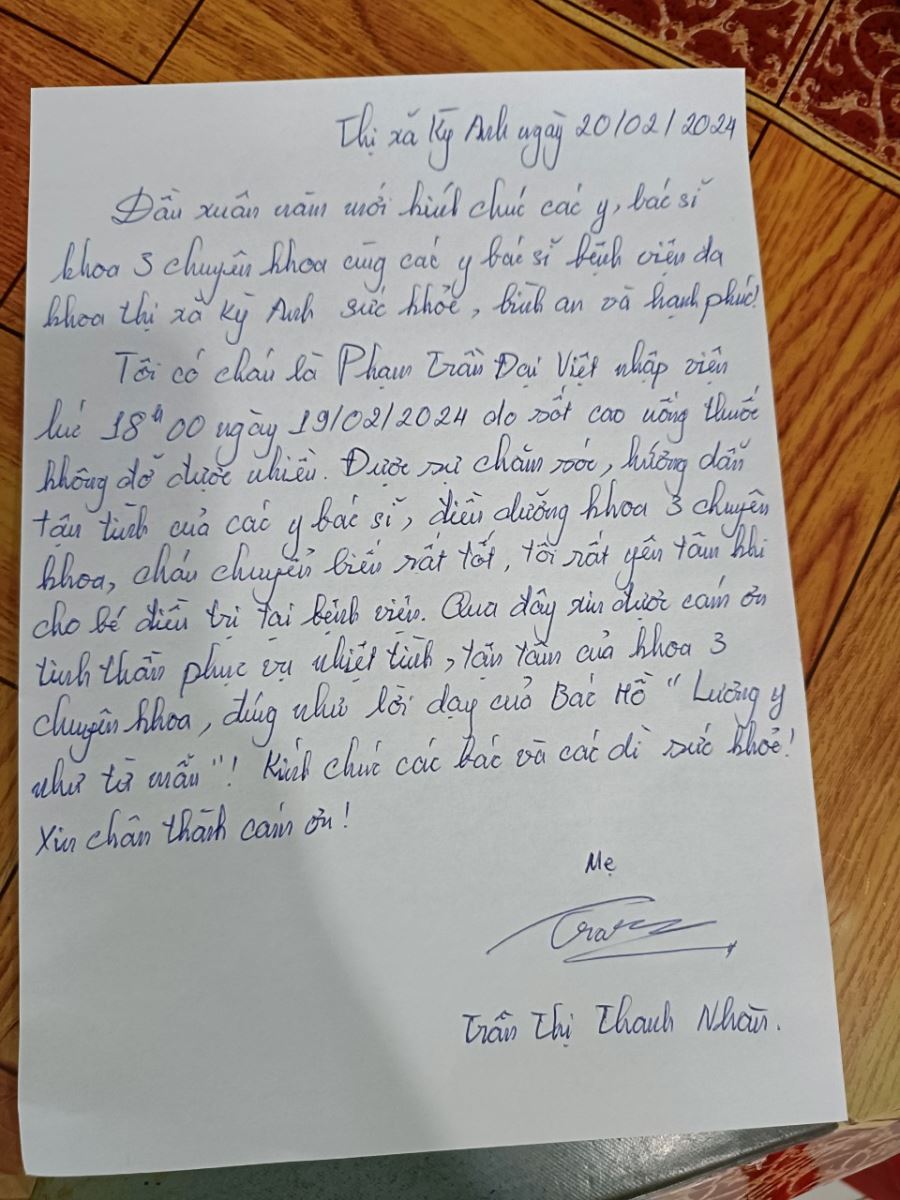 Thị xã Kỳ Anh ngày 20/02/2024
Đầu xuân năm mới kính chúc các y, bác sĩ
khoa 3 chuyên khoa cùng các y bác sĩ bệnh viện đa
khoa thị xã Kỳ Anh sức khỏe, bình an và hạnh phúc!
Tôi có cháu là Phạm Trần Đại Việt nhập viện
lúc 18h00 ngày 19/02/2024 do sốt cao uống thuốc
không đỡ được nhiều. Được sự chăm sóc, hướng dẫn
tận tình của các y bác sĩ, điều dưỡng khoa 3 chuyên
khoa, cháu chuyển biến rất tốt, tôi rất yên tâm khi
cho bé điều trị tại bệnh viện. Qua đây xin được cám ơn
tinh thần phục vụ nhiệt tình, tận tâm của khoa 3
chuyên khoa, đúng như lời dạy của Bác Hồ "Lương y
như từ mẫu"! Kính chúc các bác và các dì sức khoẻ!
Xin chân thành cám ơn!
Mẹ
Trần Thị Thanh Nhàn.